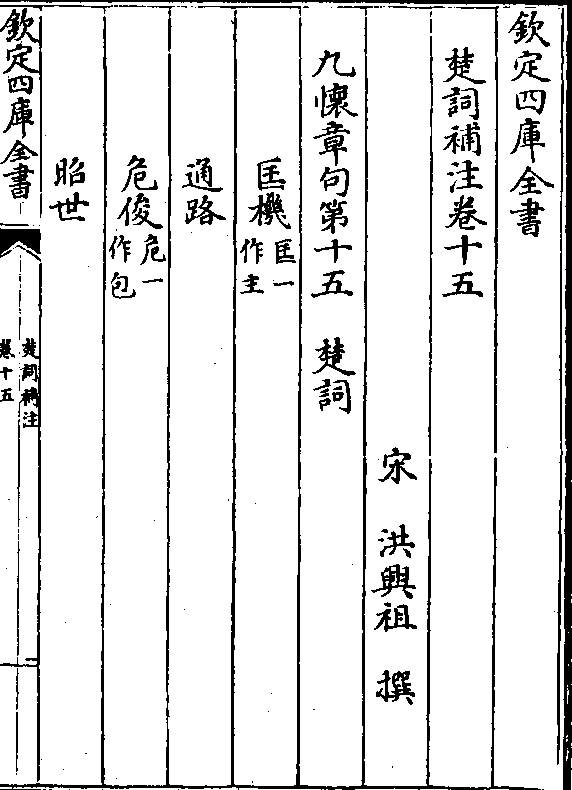 欽定四庫全書
楚詞補注卷十五
宋 洪興祖 撰
九懷章句第十五 楚詞
匡機匡一作主
通路
危俊危一作包
昭世
欽定四庫全書
楚詞補注
卷十五